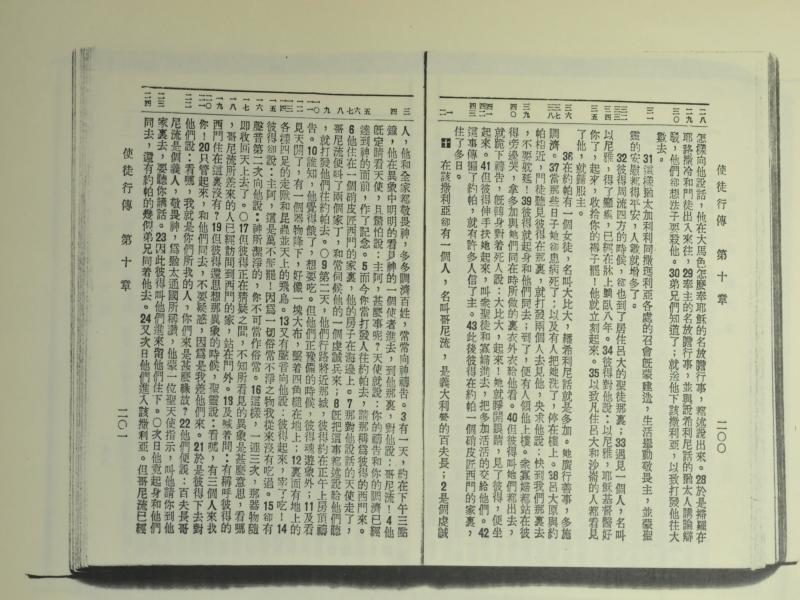 使徒行傳 第十章 二〇〇
怎樣向他說話，他在大馬色怎麼奉耶穌的名放膽行事，都述說出來。28於是掃羅在
耶路撒冷和門徒出入來往，29奉主的名放膽行事，並與說希利尼話的猶太人講論辯
駁，他們卻想法子要殺他。30弟兄們知道了；就送他下該撒利亞，以致打發他往大
數去。
31這樣猶太加利利同撒瑪利亞各處的召會旣蒙建造，生活舉動敬畏主，並蒙聖
靈的安慰都得平安，人數就增多了。
32彼得周流四方的時候，卻也到了居住呂大的聖徒那裏；33遇見一個人，名叫
以尼雅，得了癱瘓，已經在牀上躺臥八年。34彼得對他說：以尼雅，耶穌基督醫好
你了，起來，收拾你的褥子罷！他就立刻起來。35以致凡住呂大和沙崙的人都看見
了他，就歸服主。
36在約帕有一個女徒，名叫大比大，繙希利尼話就是多加。她廣行善事，多施
調濟。37當那些日子她卻患病死了；以及有人把她洗了，停在樓上。38呂大原與約
帕相近，門徒聽見彼得在那裏，就打發兩個人去見他，央求他說：快到我們那裏去
，不要耽延！39彼得就起身和他們同去；到了，便有人領他上樓。衆寡婦都站在彼
得旁邊哭，拿多加與她們同在時所做的裏衣外衣給他看。40但彼得叫她們都出去，
就跪下禱告，旣轉身對着死人說：大比大，起來！她就睜開眼睛，見了彼得，便坐
起來。41但彼得伸手扶她起來，叫衆聖徒和寡婦進去，把多加活活的交給他們。42
這事傳徧了約帕，就有許多人信了主。43此後彼得在約帕一個硝皮匠西門的家裏，
住了多日。
在該撒利亞卻有一個人，名叫哥尼流，是義大利營的百夫長；2是個虔誠
使徒行傳 第十章 二〇一
人，他和全家都敬畏神，多多調濟百姓，常常向神禱告。3有一天，約在下午三點
鐘，他在異象中明明的看見神的一個使者進去，到他那裏，對他說：哥尼流！4他
旣定睛看天使，且驚怕說：主阿，甚麼事呢？天使就說：你的禱告和你的調濟已經
達到神的面前，作了記念。5而今你當打發人往約帕去，請那稱爲彼得的西門來。
6他住在一個硝皮匠西門的家裏，他的房子在海邊上。7那對他說話的天使走了，
哥尼流便叫了兩個家丁，和常伺候他的一個虔誠兵來；8旣把這事都述說給他們聽
，就打發他們往約帕去。〇9第二天，他們行路將近那城，彼得約在正午上房頂禱
告。10誰知，他覺得餓了，想要吃。但他們正豫備的時候，彼得魂遊象外；11及看
見天開了，有一個器物降下，好像一塊大布，繫着四角縋在地上；12裏面有地上的
各樣四足的走獸和昆蟲並天上的飛鳥。13又有聲音向他說：彼得起來，宰了吃！14
彼得卻說：主阿，這是萬不能！因爲一切俗常不淨之物我從來沒有吃過。15卻有
聲音第二次向他說：神所潔淨的，你不可當作俗常。16這樣，一連三次，那器物隨
卽收回天上去了。〇17但彼得正在猜疑之間，不知所看見的異象是甚麼意思，看哪
，哥尼流所差來的人已經訪問到西門的家，站在門外。18及喊着問：有稱呼彼得的
西門住在這裏沒有？19但彼得還思想那異象的時候，聖靈說：看哪，有三個人來找
你！20只管起來，和他們同去，不要疑惑，因爲是我差他們來。21於是彼得下去對
他們說：看哪，我就是你們所找的人，你們來是甚麼緣故？22他們便說：百夫長哥
尼流是個義人，敬畏神，爲猶太通國所稱讚，他蒙一位聖天使指示，叫他請你到他
家裏去，要聽你講話。23因此彼得叫他們進來留他們住下。〇次日他旣起身和他們
同去，還有約帕的幾個弟兄同着他去。24又次日他們進入該撒利亞。但哥尼流已經